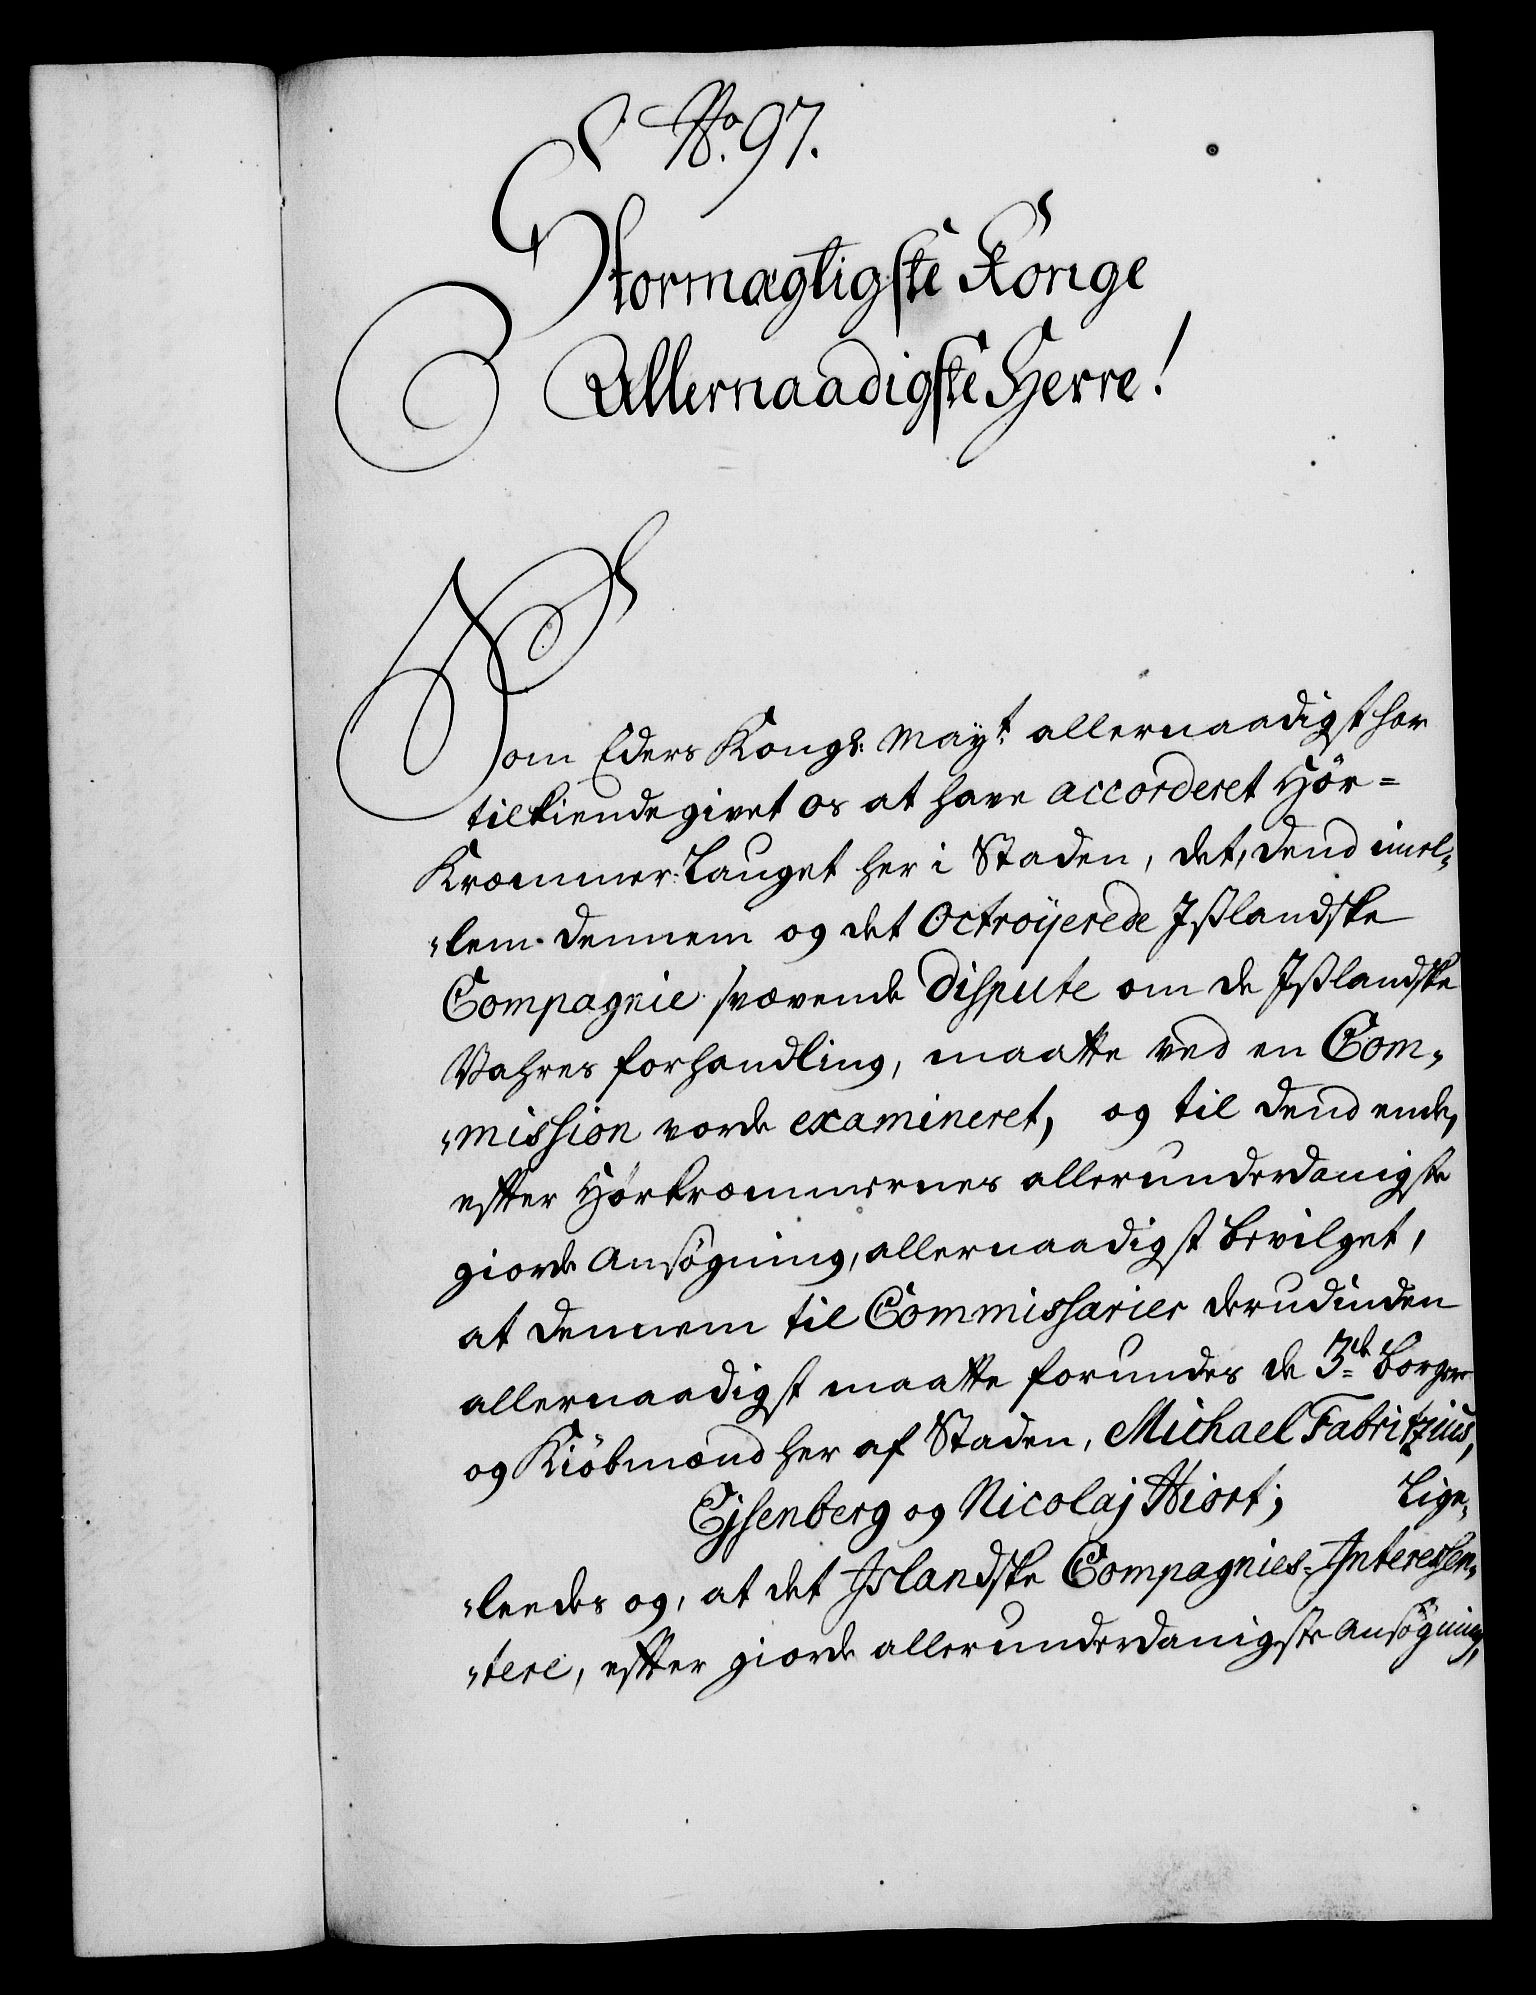 No. 97.
Stormægtigste Konge
Allernaadigste Herre!
Som Eders Kongl: Mayt. allernaadigst har
tilkiendegivet os at have accorderet Hör=
Kræmmer-Lauget her i Staden, det, dend imel„
„lem dennem og det Octroyerede Ißlandske
Compagnie svævende dispute om de Ißlandske
Vahres forhandling, maatte ved en Com„
„mission vorde examineret, og til dend ende,
efter Hörkræmmernes allerunderdanigste
giorde Ansögning, allernaadigst bevilget,
at dennem til Commissarier derudinden
allernaadigst maatte forundes de 3de Borgere
og Kiöbmænd her af Staden, Michael Fabritzius,
Ejsenberg og Nicolaj Hiort; Lige„
„leedes og, at det Islandske Compagnies-Interessen„
„tere, efter giorde allerunderdanigste Ansögning,